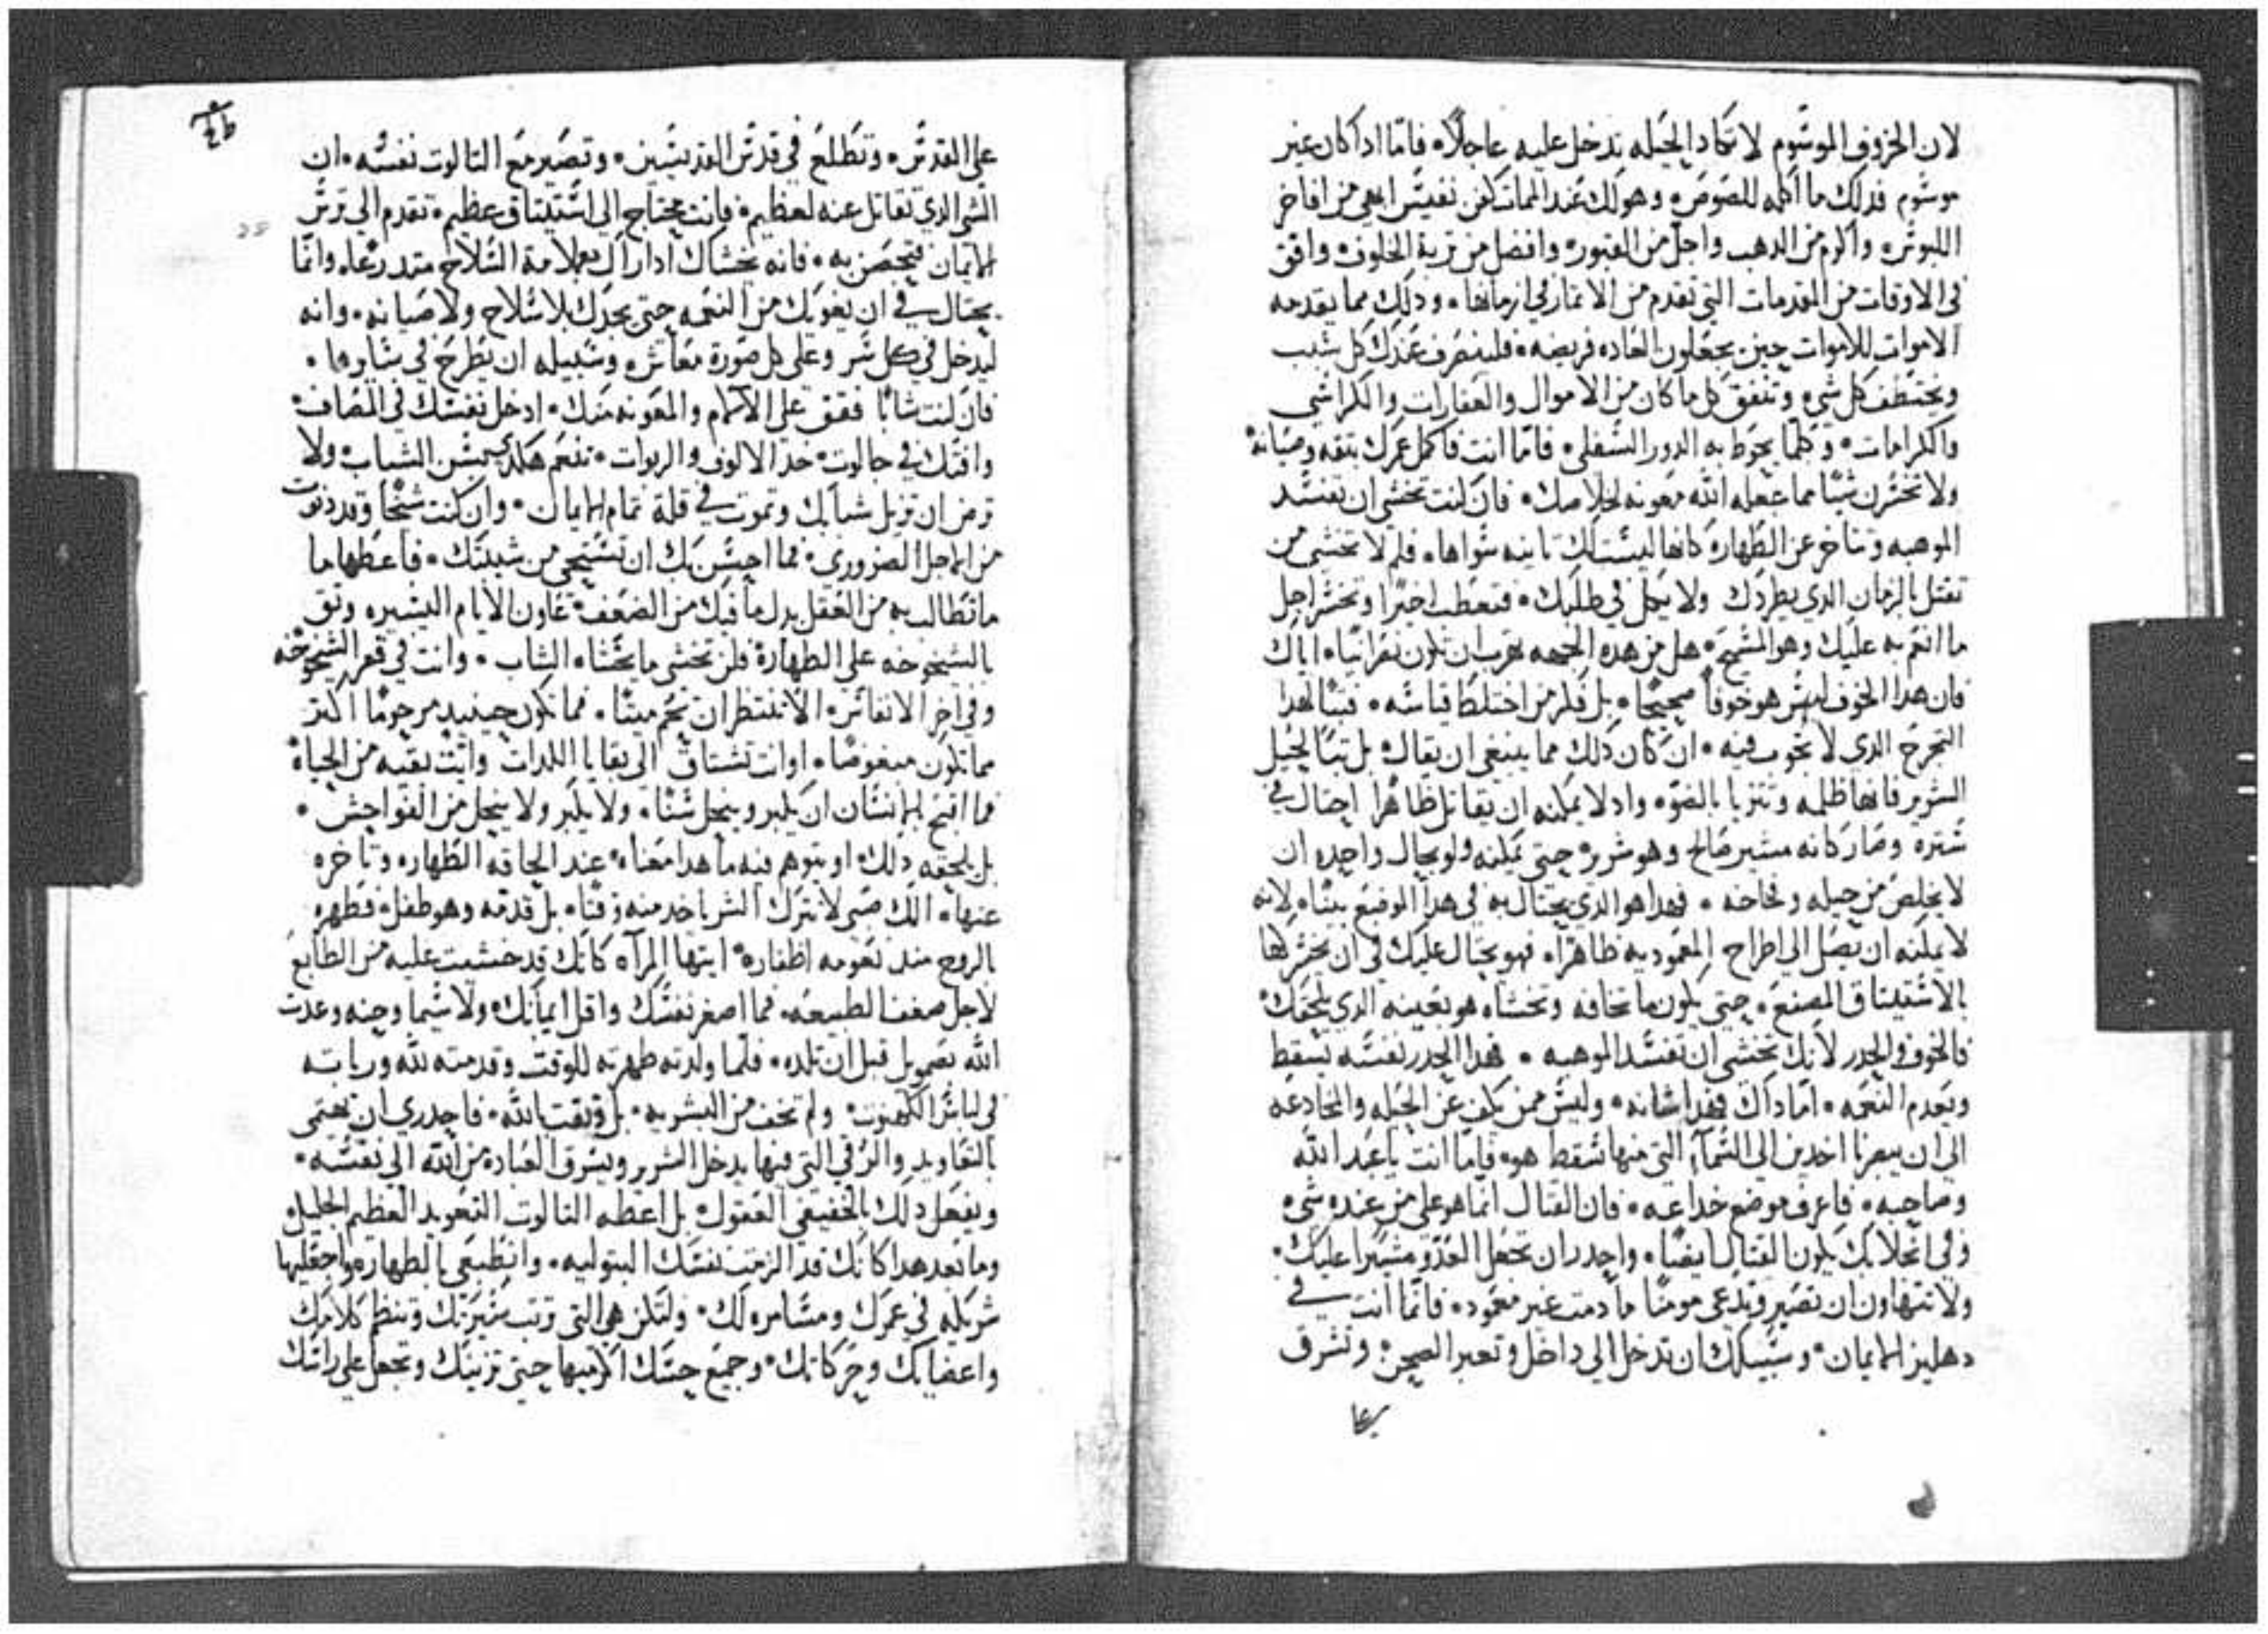 لان الخروف الموسوم لا تكاد الحيله تدخل عليه عاجلاً. فامّا ادا كان غير
موسوم فدلك ما اكله للصوص. وهو لك عند الممات كفن نفيس ابهى من افاخر
اللبوس. واكرم من الدهب واجلّ من القبور. وافضل من تربة الخلوف. واقق
فى الاوقات من المقدمات التى تقدم من الاتمار في ازمانها. ودلك مما يقدمه
الاموات للاموات حين يجعلون العاده فريضه. فلينصرف عندك كل سبب
ويختطف كل شي. وتنفق كل ما كان من الاموال والعقارات والكراسى
والكرامات. وكلما يحوط به الدور السفلى. فامّا انت فاكمل عمرك بتقه وصيانة
ولا تخسرن شيًا مما جعله الله معونه لخلاصك. فان كنت تخشى ان تفسد
الموهبه وتتاخر عن الطهارة كانها ليست لك تانيه سواها. فلم لا تخشى من
تقتل بالزمان الدي يطردك ولا يمل في طلبك. فتعطب اخيرًا وتخسر اجل
ما انعم به عليك وهو المسيح. هل من هده الجهه تهرب ان تكون نصرانيًا. اياك
فان هدا الخوف ليس هو خوفاً صحيحًا. بل فكر من اختلط قياسه. فتبًا لهدا
التحرج الدى لا تحوب فيه. ان كان دلك مما ينبغى ان يقال. بل تبًا لحيل
الشرير فانها ظلمه وتتزيا بالضوّ. واد لا يمكنه ان يقاتل ظاهرًا احتال في
ستره وصار كانه مشير صالح وهو شرير. حتى يمكنه ولو بحال واحده ان
لا يخلص من حيله وفخاخه. فهدا هو الدي يحتال به فى هدا الموضع بيننا. لانه
لا يمكنه ان يصل الى اطراح المعموديه ظاهرًا. فهو يحتال عليك فى ان يخسركها
بالاستيتاق المصنع. حتى يكون ما تخافه وتخشاه هو بعينه الدي يلحقك
فالخوف والحدر لانك تخشى ان تفسد الموهبه. فهدا الحدر نفسه يسقط
ويعدم النعمه. امّا داك فهدا شانه. وليس ممن يكف عن الحيله والمخادعه
الى ان يبصرنا اخدين الى السمآ. التى منها سقط هو. فامّا انت يا عبد الله
وصاحبه. فاعرف موضع خداعه. فان القتال انما هو على من عنده شى
وفى انحلالك يكون القتال ايضًا. واحدر ان تجعل العدو مشيرًا عليك.
ولا تتهاون ان تصير وتدعى مومنًا ما دمت غير معمود. فانما انت في
دهليز الايمان. وسبيلك ان تدخل الى داخل وتعبر الصحن. وتشرف
على القدس. وتطلع في قدس القديسين. وتصير مع التالوت نفسه. ان
الشى الدي تقاتل عنه لعظيم. فانت محتاج الى استيتاق عظيم. تقدم الى ترس
الايمان فتحصن به. فانه يخشاك ادا راك بملامة السلاح متدرعًا. وانّما
يحتال في ان يعريك من النعمه حتى يجدك بلا سلاح ولا صيانه. وانه
ليدخل في كل سر وعلى كل صورة معاش. وسبيله ان يطرح في سايرها.
فان كنت شابًا فقف على الآلام والمعونه منك. ادخل نفسك في المصاف.
وافتك في جالوت. خد الالوف والربوات. تنعم هكدى بحسن الشباب. ولا
ترض ان تزيل شبابك وتموت في قلة تمام الايمان. وان كنت شيخًا وقد دنوت
من الاجل الضروري. فما احسن بك ان تستحى من شيبتك. فاعطها ما
ما تطالب به من العقل بدل ما فيك من الضعف. عاون الايام اليسيره وتق
بالشيخوخه على الطهارة فلن تخشى ما يخشاه الشاب. وانت في قعر الشيخوخه
وفي اخر الانفاس. الّا تنتظر ان تحم ميتًا. فما تكون حينيد مرحومًا اكتر
مما تكون مبغوضًا. او انت تشتاق الى بقايا اللدات وانت بقيه من الحياة
فما اقبح بالانسان ان يكبر وينحل سنًا. ولا يكبر ولا ينحل من الفواحش.
بل يلحقه دلك. او يتوهم فيه ما هدا معناه. عند الحاقه الطهاره وتاخره
عنها. الك صبى لا تترك الشر ياخد منه وقتًا. بل قدّمه وهو طفل. فطهره
بالروح مند نعومه اظفاره. ايتها المرآه كانك قد خشيت عليه من الطابع
لاجل ضعف الطبيعه. فما اصغر نفسك واقل ايمانك. ولا سيما وحنه وعدت
الله بصمويل قبل ان تلده. فلمّا ولدته طهرته للوقت وقدمته لله وربته
فى لباس الكهنوت. ولم تخف من البشريه. بل وتقت بالله. فاحدري ان يحتمى
بالتعاويد والرقي التى فيها يدخل الشرير ويسرق العبادة من الله الى نفسه.
ويفعل دلك بالخفيفى العقول. بل اعطه التالوت التعويد العظيم الجليل
وما بعد هدا كانك قد الزمت نفسك البتوليه. وانطبعى بالطهاره واجعليها
شريكه في عمرك ومسامره لك. ولتكن هى التى ترتب سيرتك وتنظم كلامك
واعضايك وحركاتك. وجميع حسك اكرميها حتى تزينك وتجعل على راسك